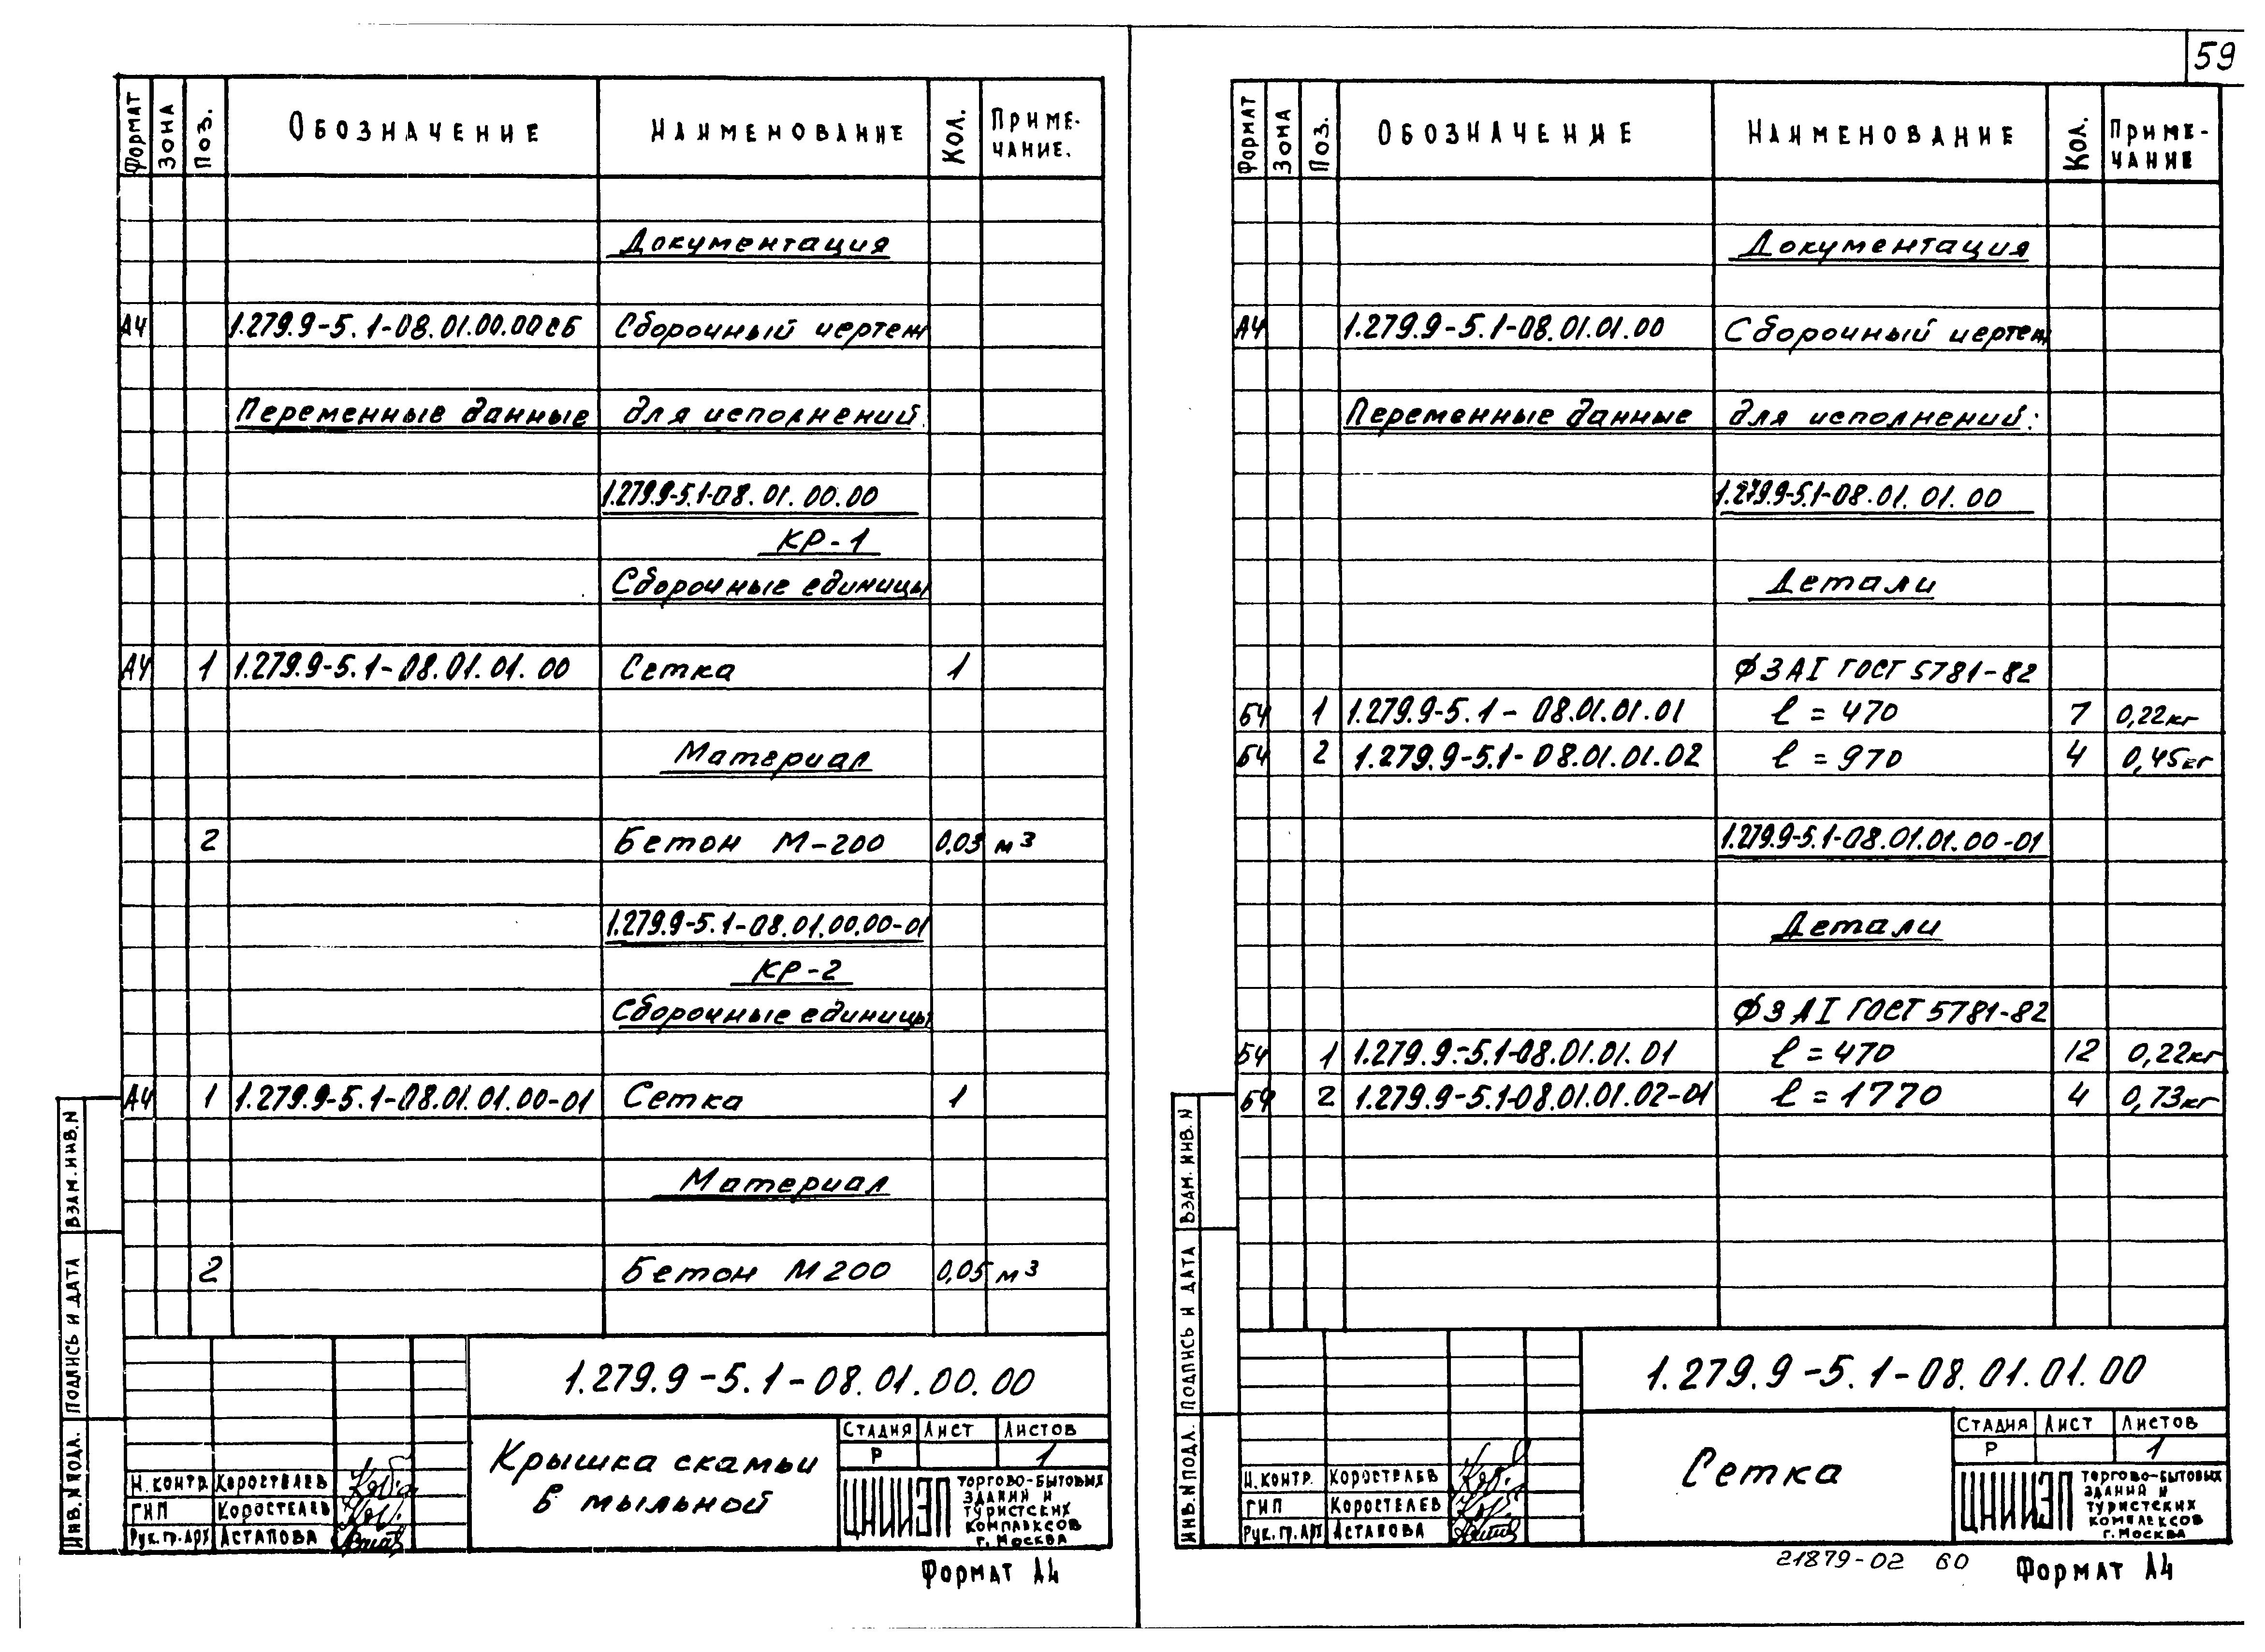 59
Формат Зона Поз. Обозначение Наименование Кол. Приме-
чание.
Документация
А4 1.279.9-5.1-08.01.00.00сб Сборочный чертеж
Переменные данные для исполнений
1.279.9-5.1-08.01.00.00
КР-1
Сборочные единицы
А4 1 1.279.9-5.1-08.01.01.00 Сетка 1
Материал
2 Бетон М-200 0,03 м3
1.279.9-5.1-08.01.00.00-01
КР-2
Сборочные единицы
А4 1 1.279.9-5.1-08.01.01.00-01 Сетка 1
Материал
2 Бетон М200 0,05 м3
Взам. инв. N
Подпись и дата
Инв. N подл.
1.279.9-5.1-08.01.00.00
Крышка скамьи
в мыльной
Стадия Лист Листов
Р 1
Н. контр. Коростелев
ГИП Коростелев
Рук. гр. арх Астапова
ЦНИИЭП торгово-бытовых
зданий и
туристских
комплексов
г. Москва
Формат А4
Формат Зона Поз. Обозначение Наименование Кол. Приме-
чание
Документация
А4 1.279.9-5.1-08.01.01.00 Сборочный чертеж
Переменные данные для исполнений:
1.279.9-5.1-08.01.01.00
Детали
Ф3АI ГОСТ 5781-82
Б4 1 1.279.9-5.1-08.01.01.01 ℓ = 470 7 0,22кг
Б4 2 1.279.9-5.1-08.01.01.02 ℓ = 970 4 0,45кг
1.279.9-5.1-08.01.01.00-01
Детали
Ф3АI ГОСТ 5781-82
Б4 1 1.279.9-5.1-08.01.01.01 ℓ = 470 12 0,22кг
Б4 2 1.279.9-5.1-08.01.01.02-01 ℓ = 1770 4 0,73кг
Взам. инв. N
Подпись и дата
Инв. N подл.
1.279.9-5.1-08.01.01.00
Сетка
Стадия Лист Листов
Р 1
Н. контр. Коростелев
ГИП Коростелев
Рук. гр. арх Астапова
ЦНИИЭП торгово-бытовых
зданий и
туристских
комплексов
г. Москва
21879-02 60
Формат А4